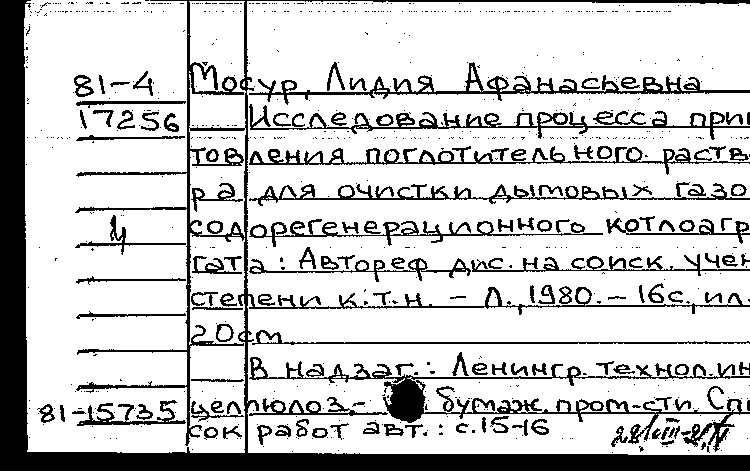 81-4 Мосур, Лидия Афанасьевна
17256 Исследование процесса приг
товления поглотительного раств
ра для очистки дымовых газо
содорегенерационного котлоагр
гата: Автореф. дис. на соиск. учен
степени к.т.н. – Л., 1980. – 16с., ил.
20см.
В надзаг.: Ленингр. технол. ин
81-15735 целлюлоз.- бумаж. пром-сти. Спи
сок работ авт.: с.15-16